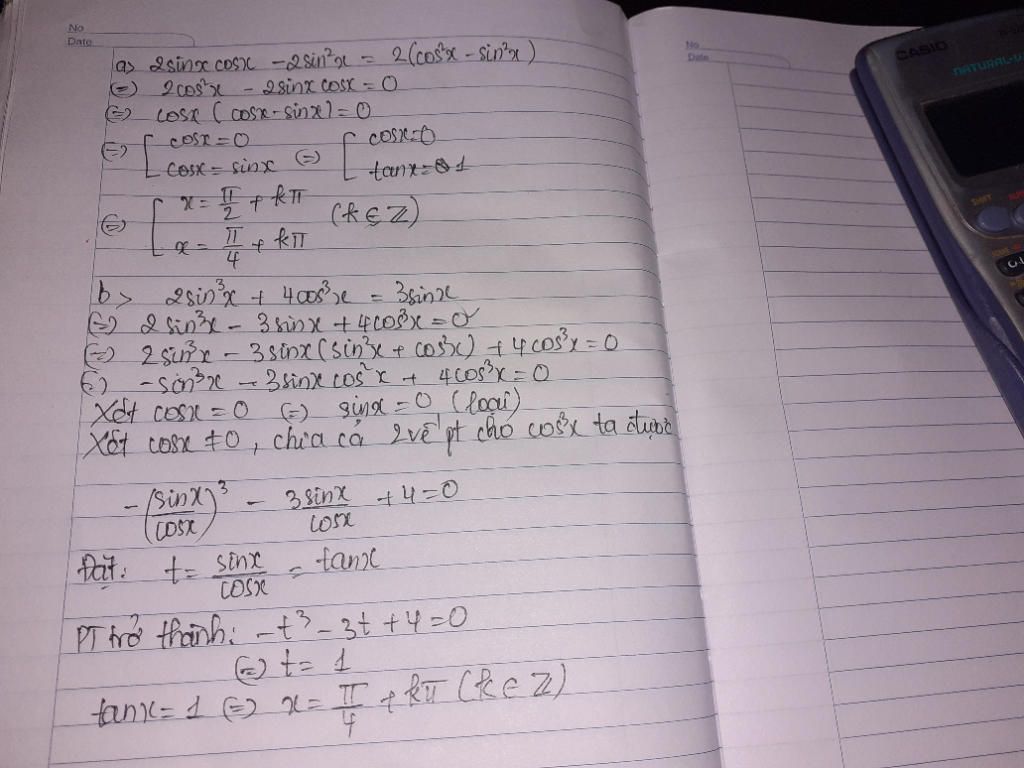 No
Date
a> 2sinx cosx - 2sin²x = 2(cos²x - sin²x)
(=) 2cos²x - 2sinx cosx = 0
(=) cosx (cosx - sinx) = 0
(=) [ cosx = 0 (=) [ cosx = 0
cosx = sinx tanx = 1
(=) [ x = π/2 + kπ (k ∈ Z)
x = π/4 + kπ
b> 2sin³x + 4cos³x = 3sinx
(=) 2sin³x - 3sinx + 4cos³x = 0
(=) 2sin³x - 3sinx (sin²x + cos²x) + 4cos³x = 0
(=) -sin³x - 3sinx cos²x + 4cos³x = 0
Xét cosx = 0 (=) sinx = 0 (loại)
Xét cosx ≠ 0, chia cả 2 vế pt cho cos³x ta được
-(sinx/cosx)³ - 3sinx/cosx + 4 = 0
Đặt: t = sinx/cosx = tanx
PT trở thành: -t³ - 3t + 4 = 0
(=) t = 1
tanx = 1 (=) x = π/4 + kπ (k ∈ Z)
No
Date
CASIO
SHIFT